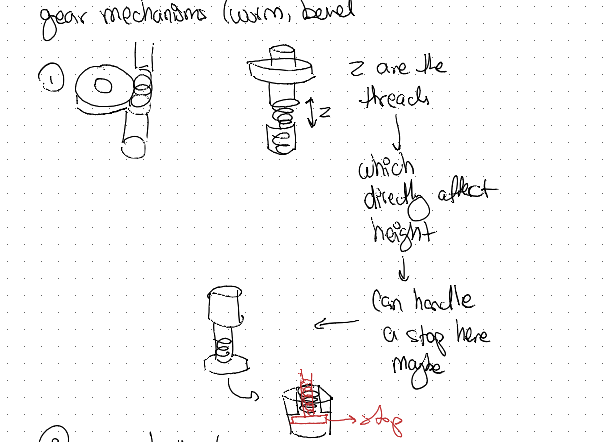 gear mechanisms (worm, bevel
1
z are the
threads
z
which
directly affect
height
can handle
a stop here
maybe
stop